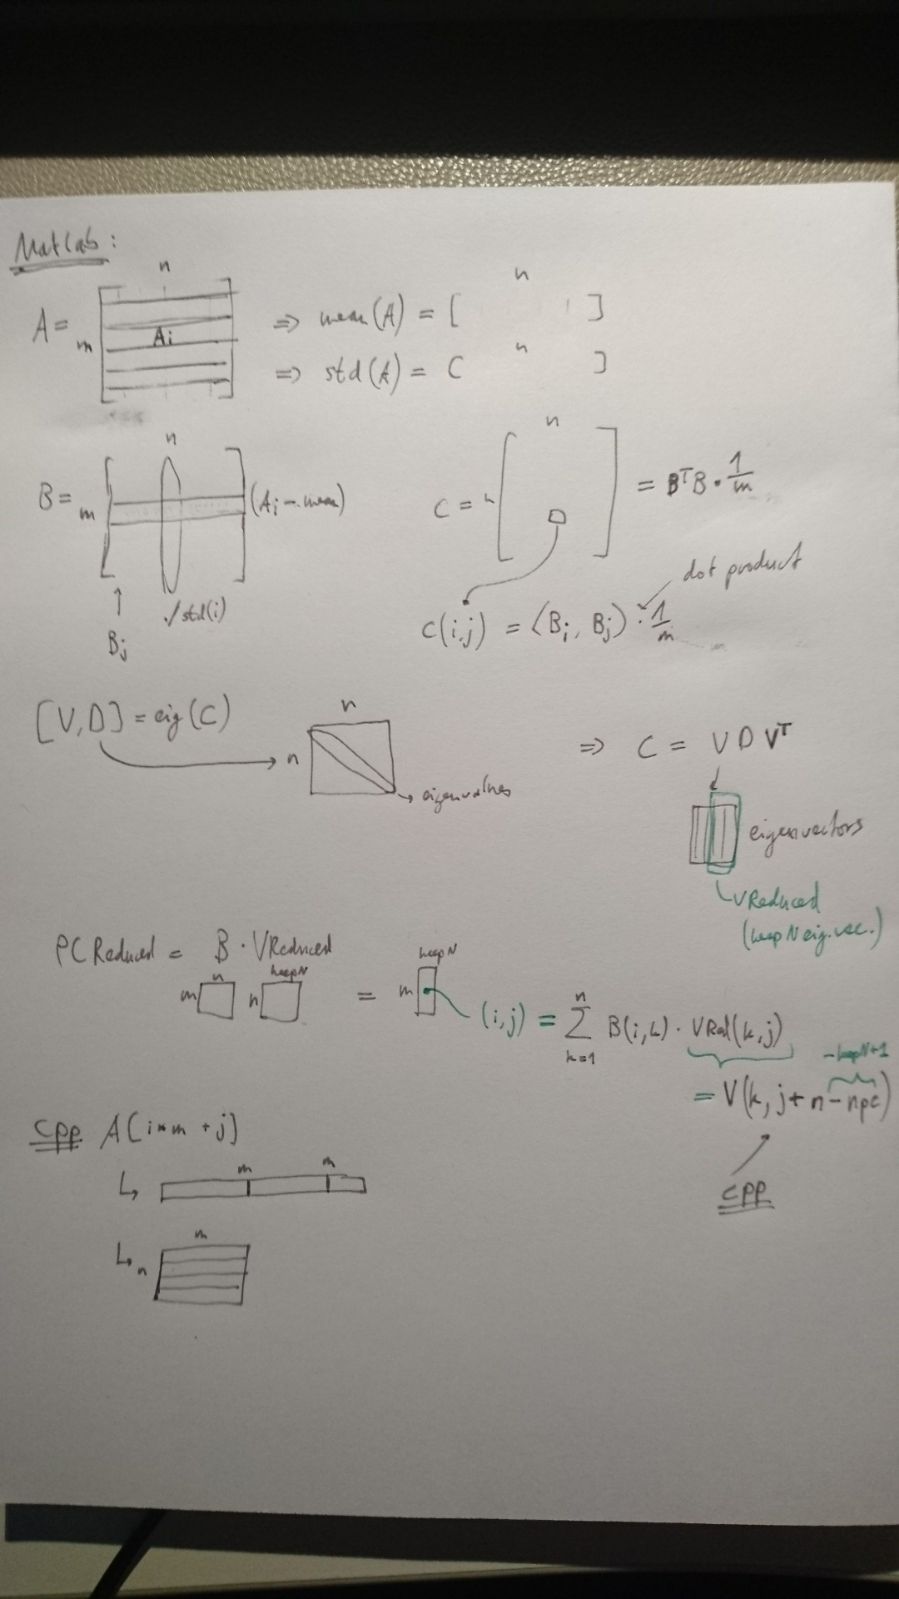 Matlab:
n
A = m [ Ai ] => mean(A) = [ n ]
=> std(A) = [ n ]
B = m [ n ] (Ai - mean)
Bj ./std(i)
C = n [ n ] = BᵀB · 1/m
dot product
C(i,j) = ⟨Bi, Bj⟩ · 1/m
[V,D] = eig(C) n n
eigenvalues
=> C = V D Vᵀ
eigenvectors
VReduced
(keep N eig.vec.)
PCReduced = B · VReduced
m n n keepN = m keepN
(i,j) = n Σ k=1 B(i,k) · VRed(k,j)
-keepN+1
= V(k, j + n - npc)
cpp
cpp A[i*m + j]
↳ m m
↳ n m